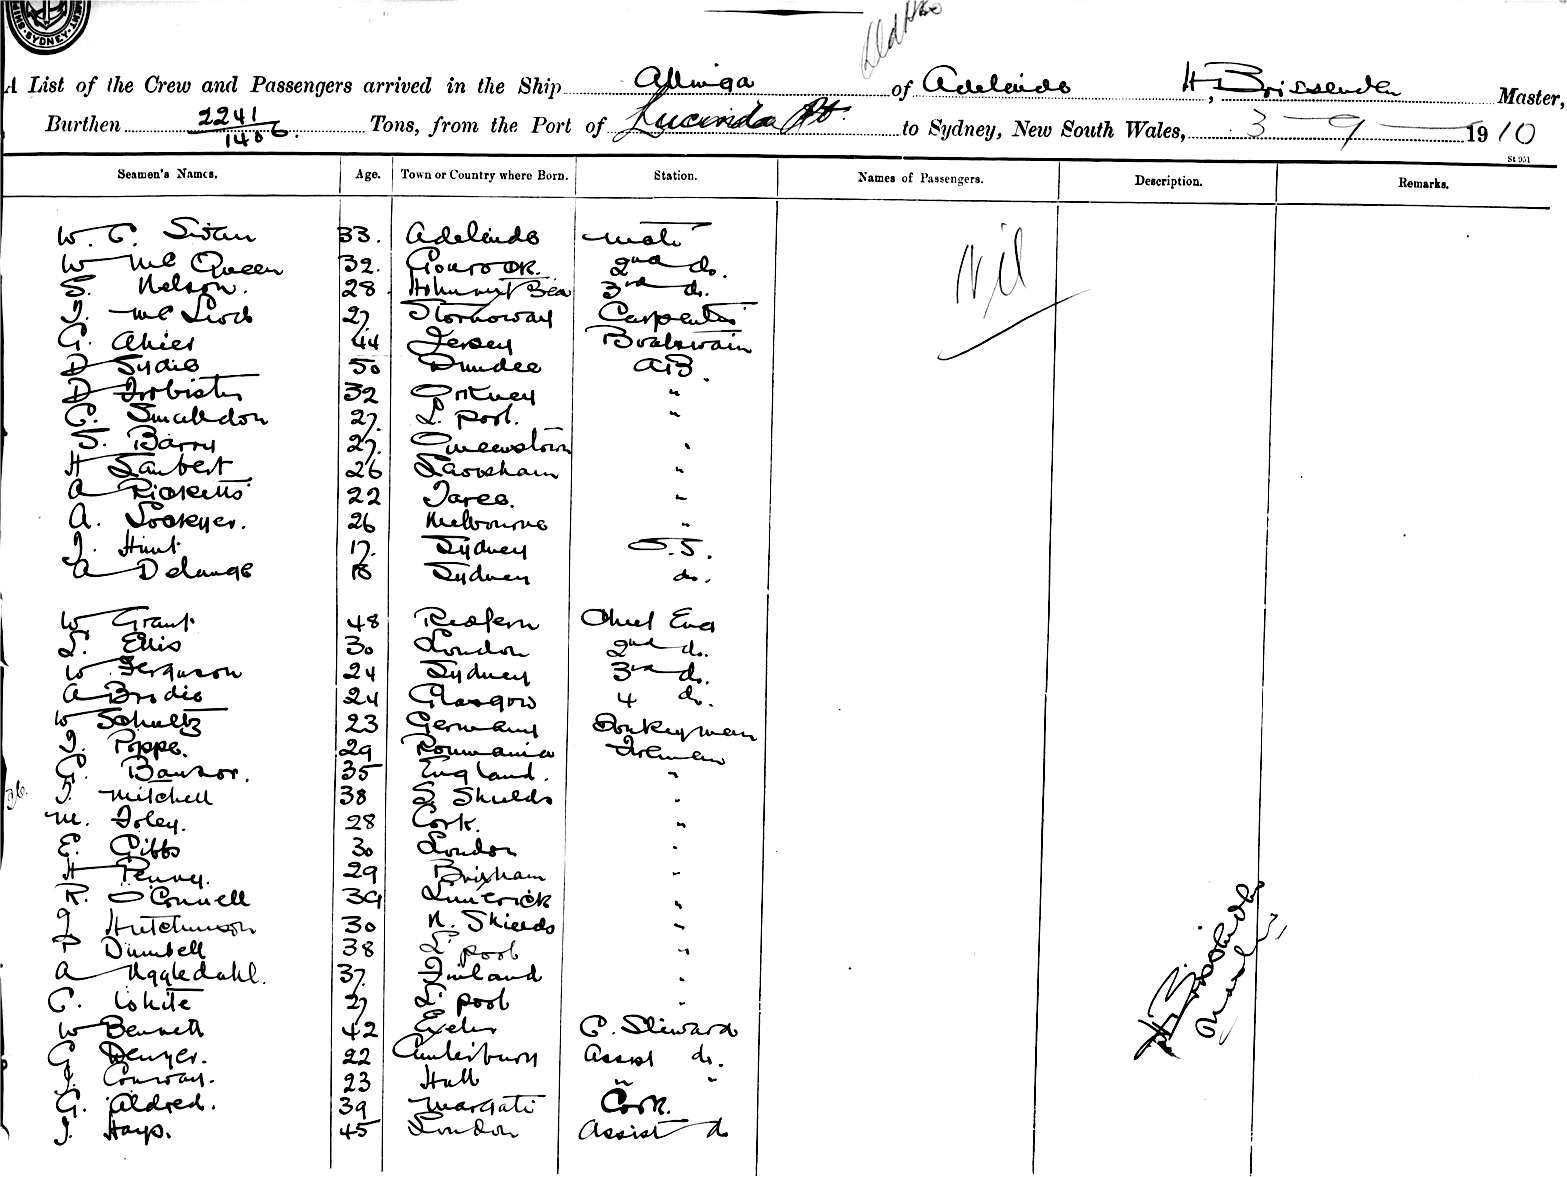 SYDNEY
A List of the Crew and Passengers arrived in the Ship Allinga of Adelaide H, Brissenden Master,
Burthen 2241/1406. Tons, from the Port of Lucinda Pt. to Sydney, New South Wales, 3 - 9 - 1910
St 951
Seamen's Names. Age. Town or Country where Born. Station. Names of Passengers. Description. Remarks.
W. C. Swan 33. Adelaide Mate Nil
W McQueen 32. Gourock. 2nd do.
S. Nelson. 28 3rd do.
J. McLeod 27. Stornoway Carpenter
G. Ahier 44 Jersey Boatswain
D Sydie 50 Dundee AB.
D Forbister 32 Orkney "
C. Smalldon 27. L. pool. "
S. Barry 27. Queenstown "
H Lambert 26 "
A Ricketts 22 Taree. "
A. Lockyer. 26 Melbourne "
J. Hunt 17. Sydney O.S.
A Delange 18 Sydney do.
W Grant 48 Redfern Chief Eng
L. Ellis 30 London 2nd do.
W Ferguson 24 Sydney 3rd do.
A Brodie 24 Glasgow 4 do.
W Schultz 23 Germany Donkeyman
J. Poppe. 29 Roumania Fireman
G. 35 England. "
J. Mitchell 38 S. Shields "
M. Foley. 28 Cork. "
E. Gibbs 30 London "
H Penny. 29 Brixham "
R. O'Connell 39 Limerick "
J Hutchinson 30 N. Shields "
P Dumbell 38 L. pool "
A Uggledahl. 37. Finland "
C. White 27 L. pool "
W Bennett 42 Exeter C. Steward
G Denyer. 22 Canterbury Assist do.
J. Conway. 23 Hull " "
G. Aldred. 39 Margate Cook.
J. Hays. 45 London Assist do
36.
H Brissenden
Master